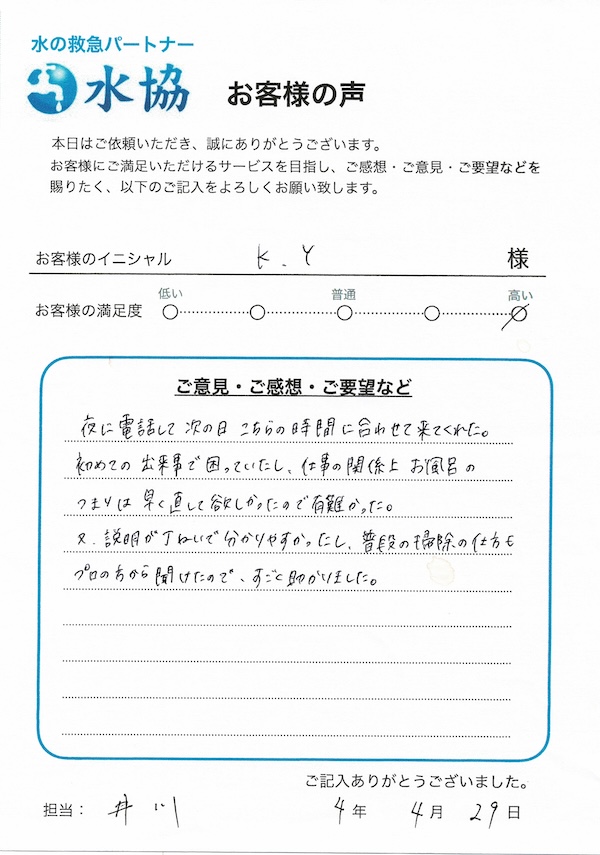 水の救急パートナー
水協 お客様の声
本日はご依頼いただき、誠にありがとうございます。
お客様にご満足いただけるサービスを目指し、ご感想・ご意見・ご要望などを
賜りたく、以下のご記入をよろしくお願い致します。
お客様のイニシャル K.Y 様
低い 普通 高い
お客様の満足度
ご意見・ご感想・ご要望など
夜に電話して次の日こちらの時間に合わせて来てくれた。
初めての出来事で困っていたし、仕事の関係上お風呂の
つまりは早く直して欲しかったので有難かった。
又、説明が丁ねいで分かりやすかったし、普段の掃除の仕方も
プロの方から聞けたので、すごく助かりました。
ご記入ありがとうございました。
担当： 井川 4年 4月 29日